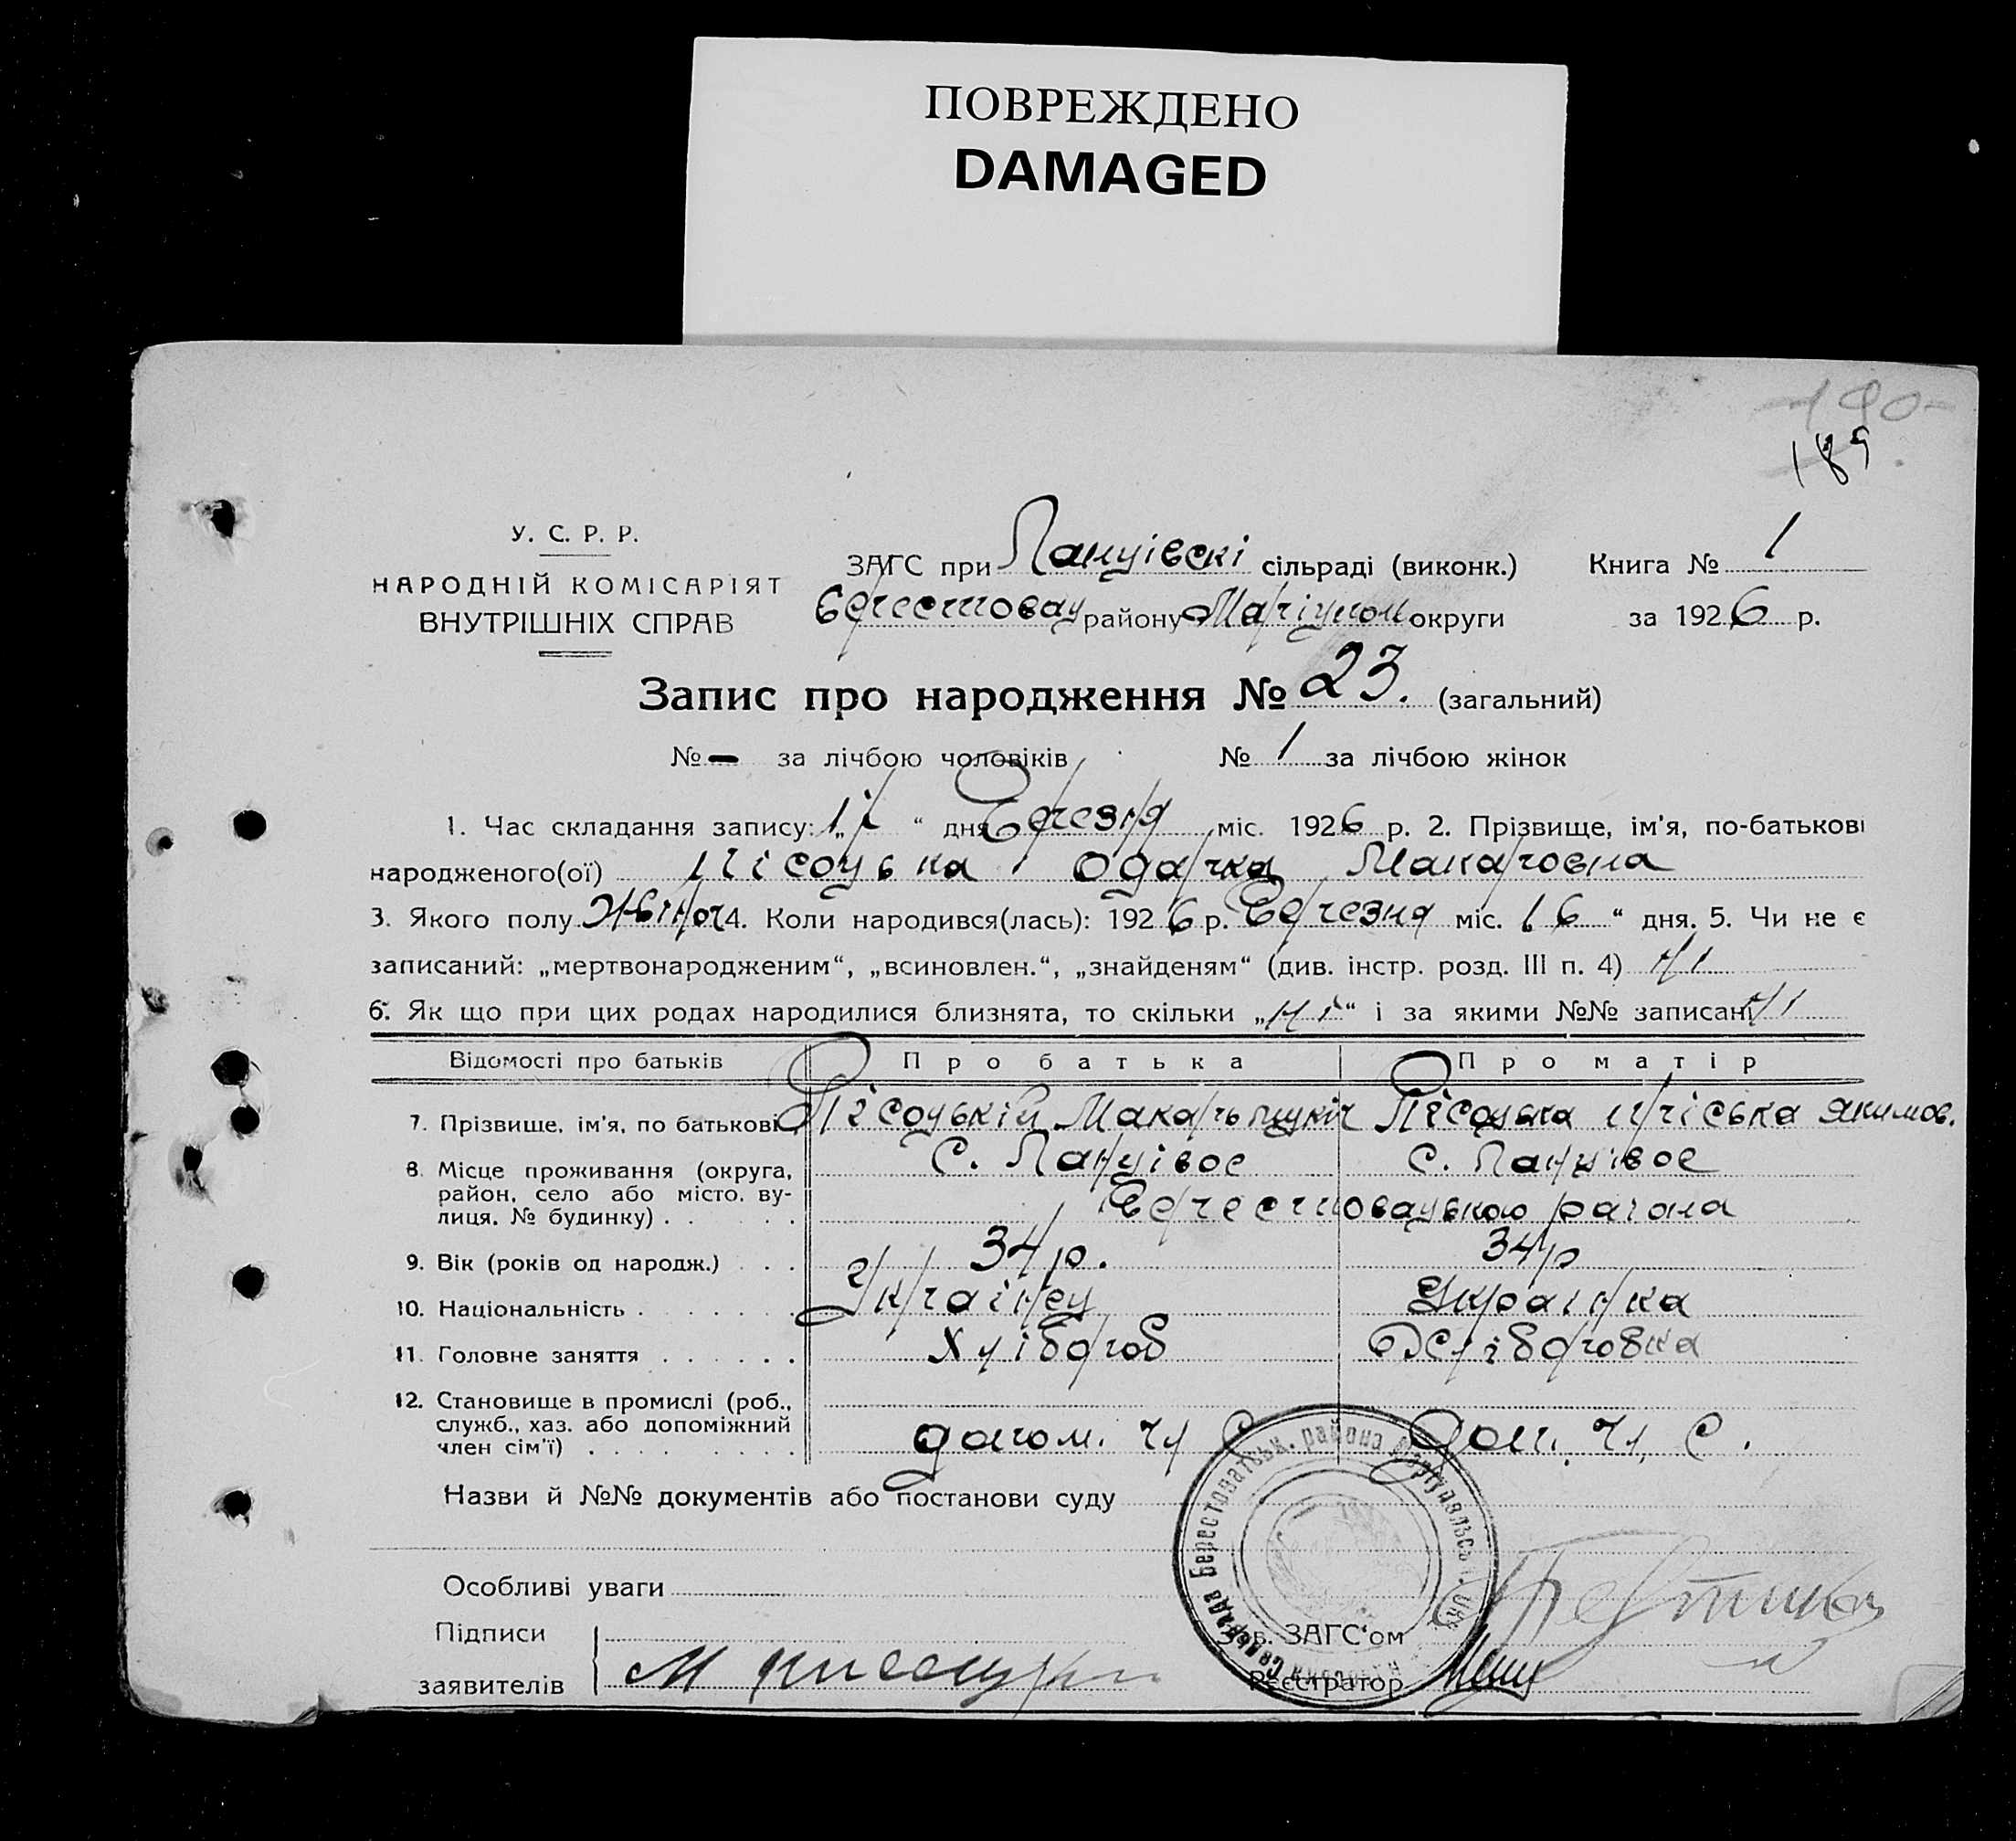 ПОВРЕЖДЕНО
DAMAGED
190
189
У. С. Р. Р.
НАРОДНІЙ КОМІСАРІЯТ
ВНУТРІШНІХ СПРАВ
ЗАГС при Панцівскі сільраді (виконк.) Книга № 1
Берестовац району Маріупол округи за 1926 р.
Запис про народження № 23. (загальний)
№ — за лічбою чоловіків № 1 за лічбою жінок
1. Час складання запису: „ “ дня Березня міс. 1926 р. 2. Прізвище, ім'я, по-батькові
народженого(ої) Пісоцька Одарка Макаровна
3. Якого полу Жіноч 4. Коли народився(лась): 1926 р. Березня міс. 16 “ дня. 5. Чи не є
записаний: „мертвонародженим“, „всиновлен.“, „знайденям“ (див. інстр. розд. III п. 4) Ні
6. Як що при цих родах народилися близнята, то скільки „ні“ і за якими №№ записані Ні
Відомості про батьків Про батька Про матір
7. Прізвище, ім'я, по батькові Пісоцький Макарь Пісоцька Якимов.
8. Місце проживання (округа, С. Панцівое С. Панцівое
район, село або місто, ву-
лиця, № будинку) Берестовацького района
9. Вік (років од народж.) 34 р. 34 р
10. Національність Українец Українка
11. Головне заняття Хлібороб Хліборобка
12. Становище в промислі (роб.,
служб., хаз. або допоміжний
член сім'ї) допом. чл С дом. чл, С.
Назви й №№ документів або постанови суду
Особливі уваги
Підписи
Зав. ЗАГС'ом
заявителів М
Реєстратор
Сельрада Берестоватськ. района